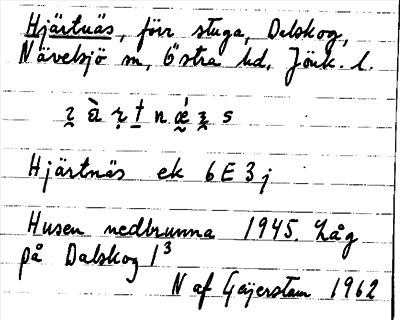 Hjärtnäs, förr stuga, Dalskog,
Nävelsjö sn, Östra hd, Jönk. l.
Hjärtnäs ek 6E3j
Husen nedbrunna 1945. Låg
på Dalskog 1³
N af Geijerstam 1962